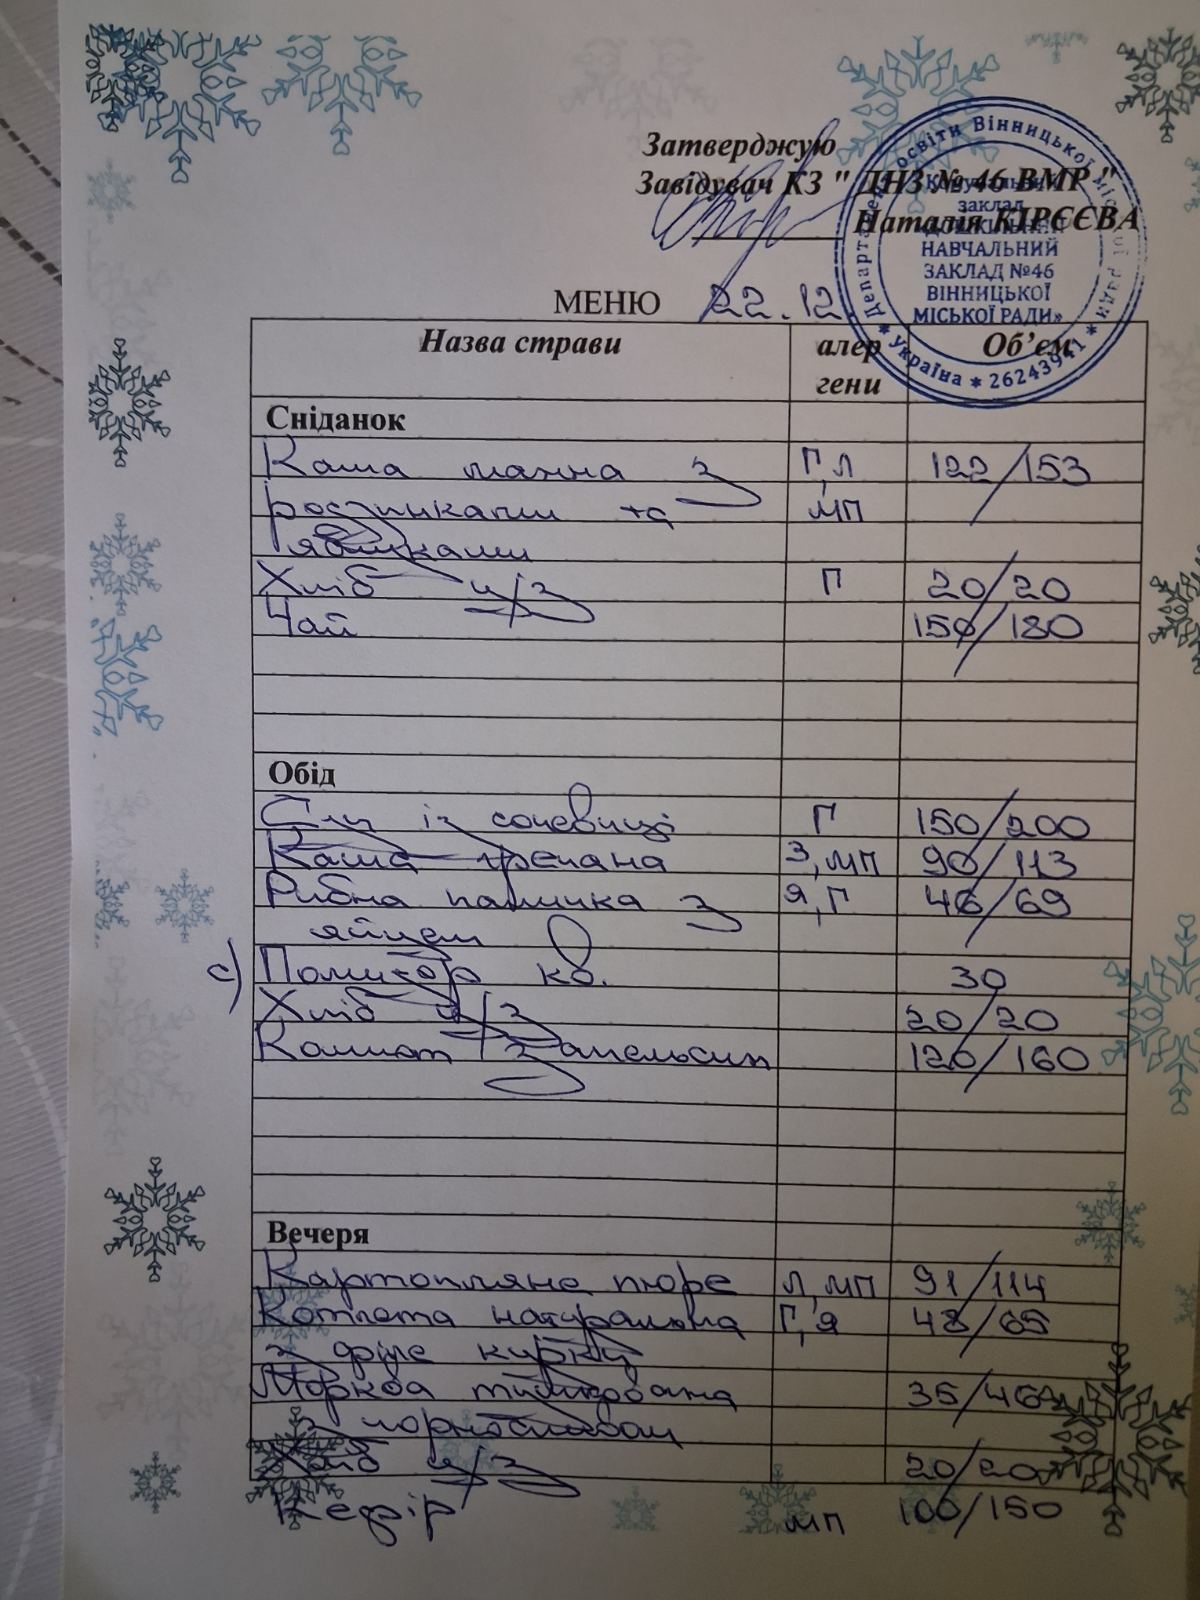 Затверджую
Завідувач КЗ " ДНЗ № 46 ВМР "
Наталія КІРЄЄВА
Департамент освіти Вінницької міської ради * Україна * 26243941 *
Комунальний
заклад
«ДОШКІЛЬНИЙ
НАВЧАЛЬНИЙ
ЗАКЛАД №46
ВІННИЦЬКОЇ
МІСЬКОЇ РАДИ»
МЕНЮ 22.12.
Назва страви алер гени Об’єм
Сніданок
Каша манна з Г,Л 122/153
родзинками та МП
яблуками
Хліб ц/з Г 20/20
Чай 150/180
Обід
Суп із сочевиці Г 150/200
Каша гречана З,МП 90/113
Рибна паличка з Я,Г 46/69
яйцем
с) Помідор кв. 30
Хліб ц/з 20/20
Компот з апельсин 120/160
Вечеря
Картопляне пюре Л,МП 91/114
Котлета натуральна Г,Я 48/65
з філе курки
Морква тушкована 35/46
з чорносливом
Хліб ц/з 20/20
Кефір МП 100/150